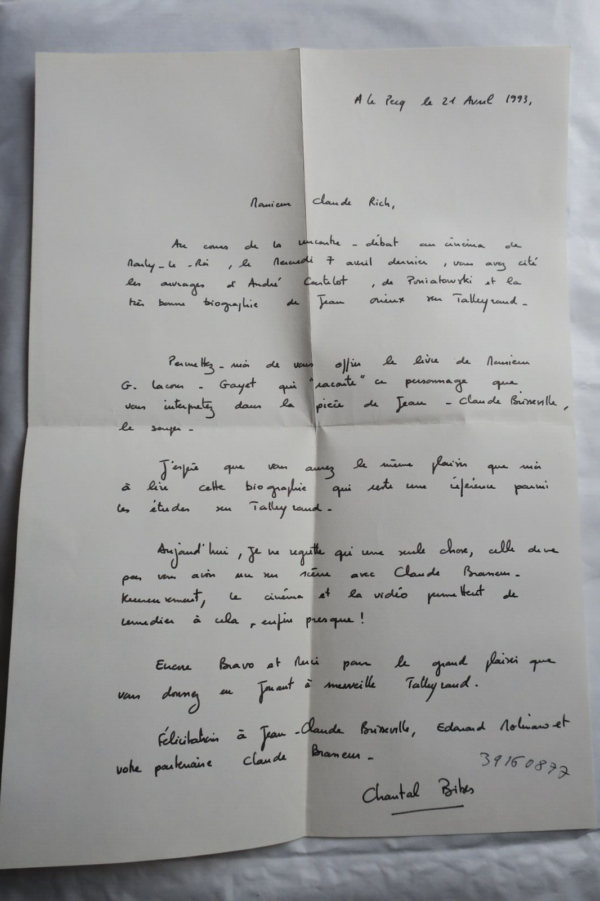 A Le Pecq le 21 Avril 1993,
Monsieur Claude Rich,
Au cours de la rencontre - débat au cinéma de
Marly - le - Roi, le Mercredi 7 avril dernier, vous avez cité
les ouvrages d'André Castelot, de Poniatowski et la
très bonne biographie de Jean Orieux sur Talleyrand -
Permettez - moi de vous offrir le livre de Monsieur
G. Lacour - Gayet qui "raconte" ce personnage que
vous interprétez dans la pièce de Jean - Claude Brisseville,
le souper -
J'espère que vous aurez le même plaisir que moi
à lire cette biographie qui reste une référence parmi
les études sur Talleyrand -
Aujourd'hui, je ne regrette qu'une seule chose, celle de ne
pas vous avoir vu sur scène avec Claude Brasseur -
Heureusement, le cinéma et la vidéo permettent de
remédier à cela, enfin presque !
Encore Bravo et Merci pour le grand plaisir que
vous donnez en jouant à merveille Talleyrand.
Félicitations à Jean - Claude Brisseville, Edouard Molinaro et
votre partenaire Claude Brasseur -
39160872
Chantal